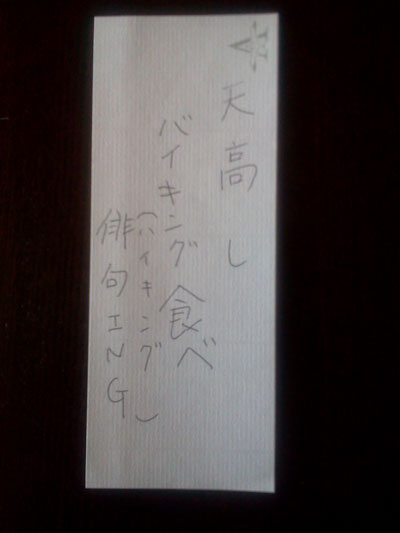 天高し
バイキング食べ
俳句ING
(ハイキング)